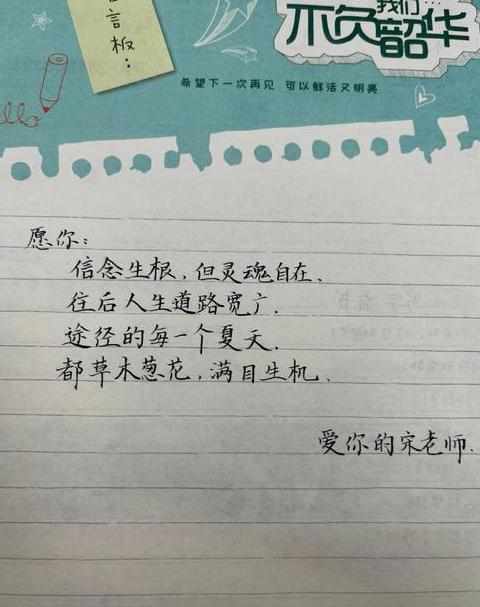 言板:
我们...
不负韶华
希望下一次再见 可以鲜活又明亮
愿你:
信念生根,但灵魂自在.
往后人生道路宽广.
途径的每一个夏天.
都草木葱花,满目生机.
爱你的宋老师.